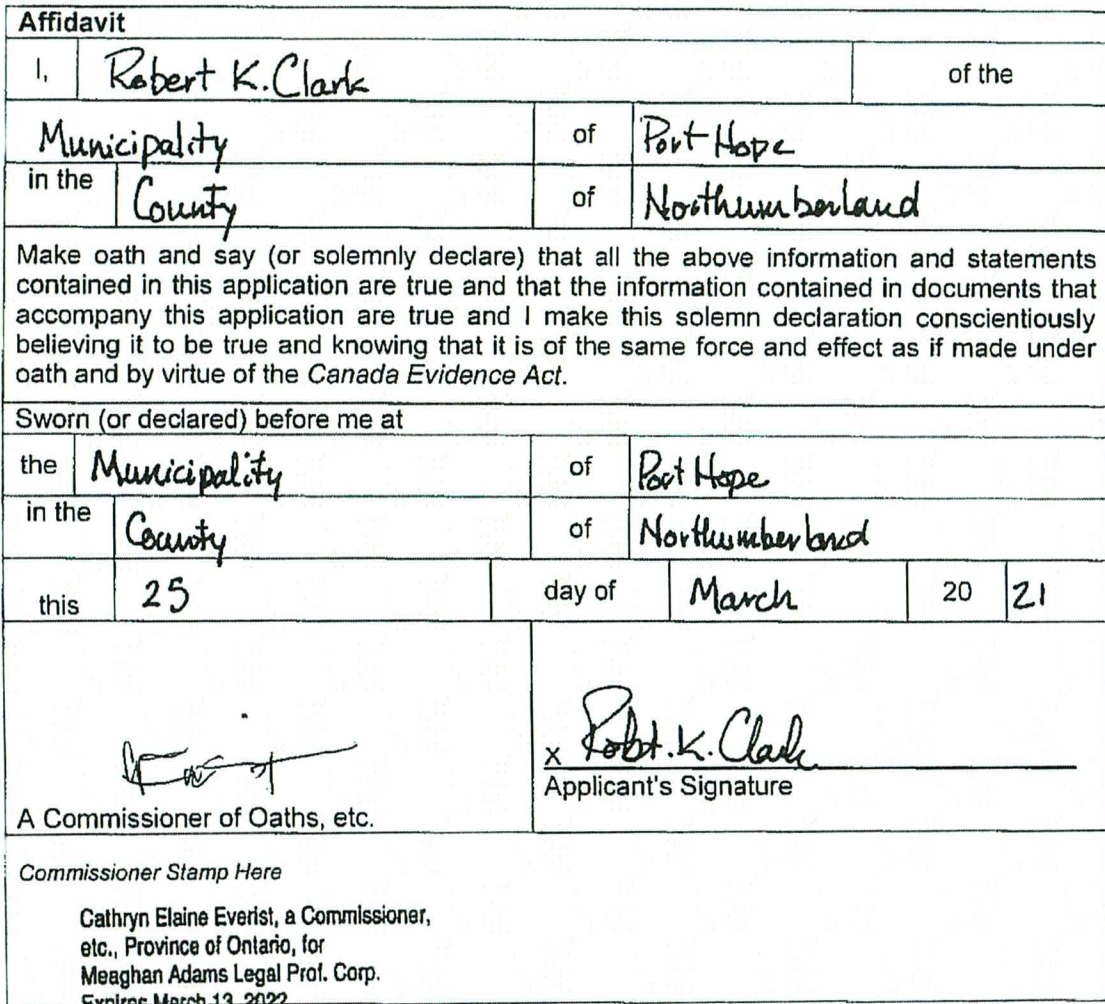 Affidavit
I, Robert K. Clark of the
Municipality of Port Hope
in the County of Northumberland
Make oath and say (or solemnly declare) that all the above information and statements
contained in this application are true and that the information contained in documents that
accompany this application are true and I make this solemn declaration conscientiously
believing it to be true and knowing that it is of the same force and effect as if made under
oath and by virtue of the Canada Evidence Act.
Sworn (or declared) before me at
the Municipality of Port Hope
in the County of Northumberland
this 25 day of March 20 21
x Robt. K. Clark
Applicant's Signature
A Commissioner of Oaths, etc.
Commissioner Stamp Here
Cathryn Elaine Everist, a Commissioner,
etc., Province of Ontario, for
Meaghan Adams Legal Prof. Corp.
Expires March 13, 2022